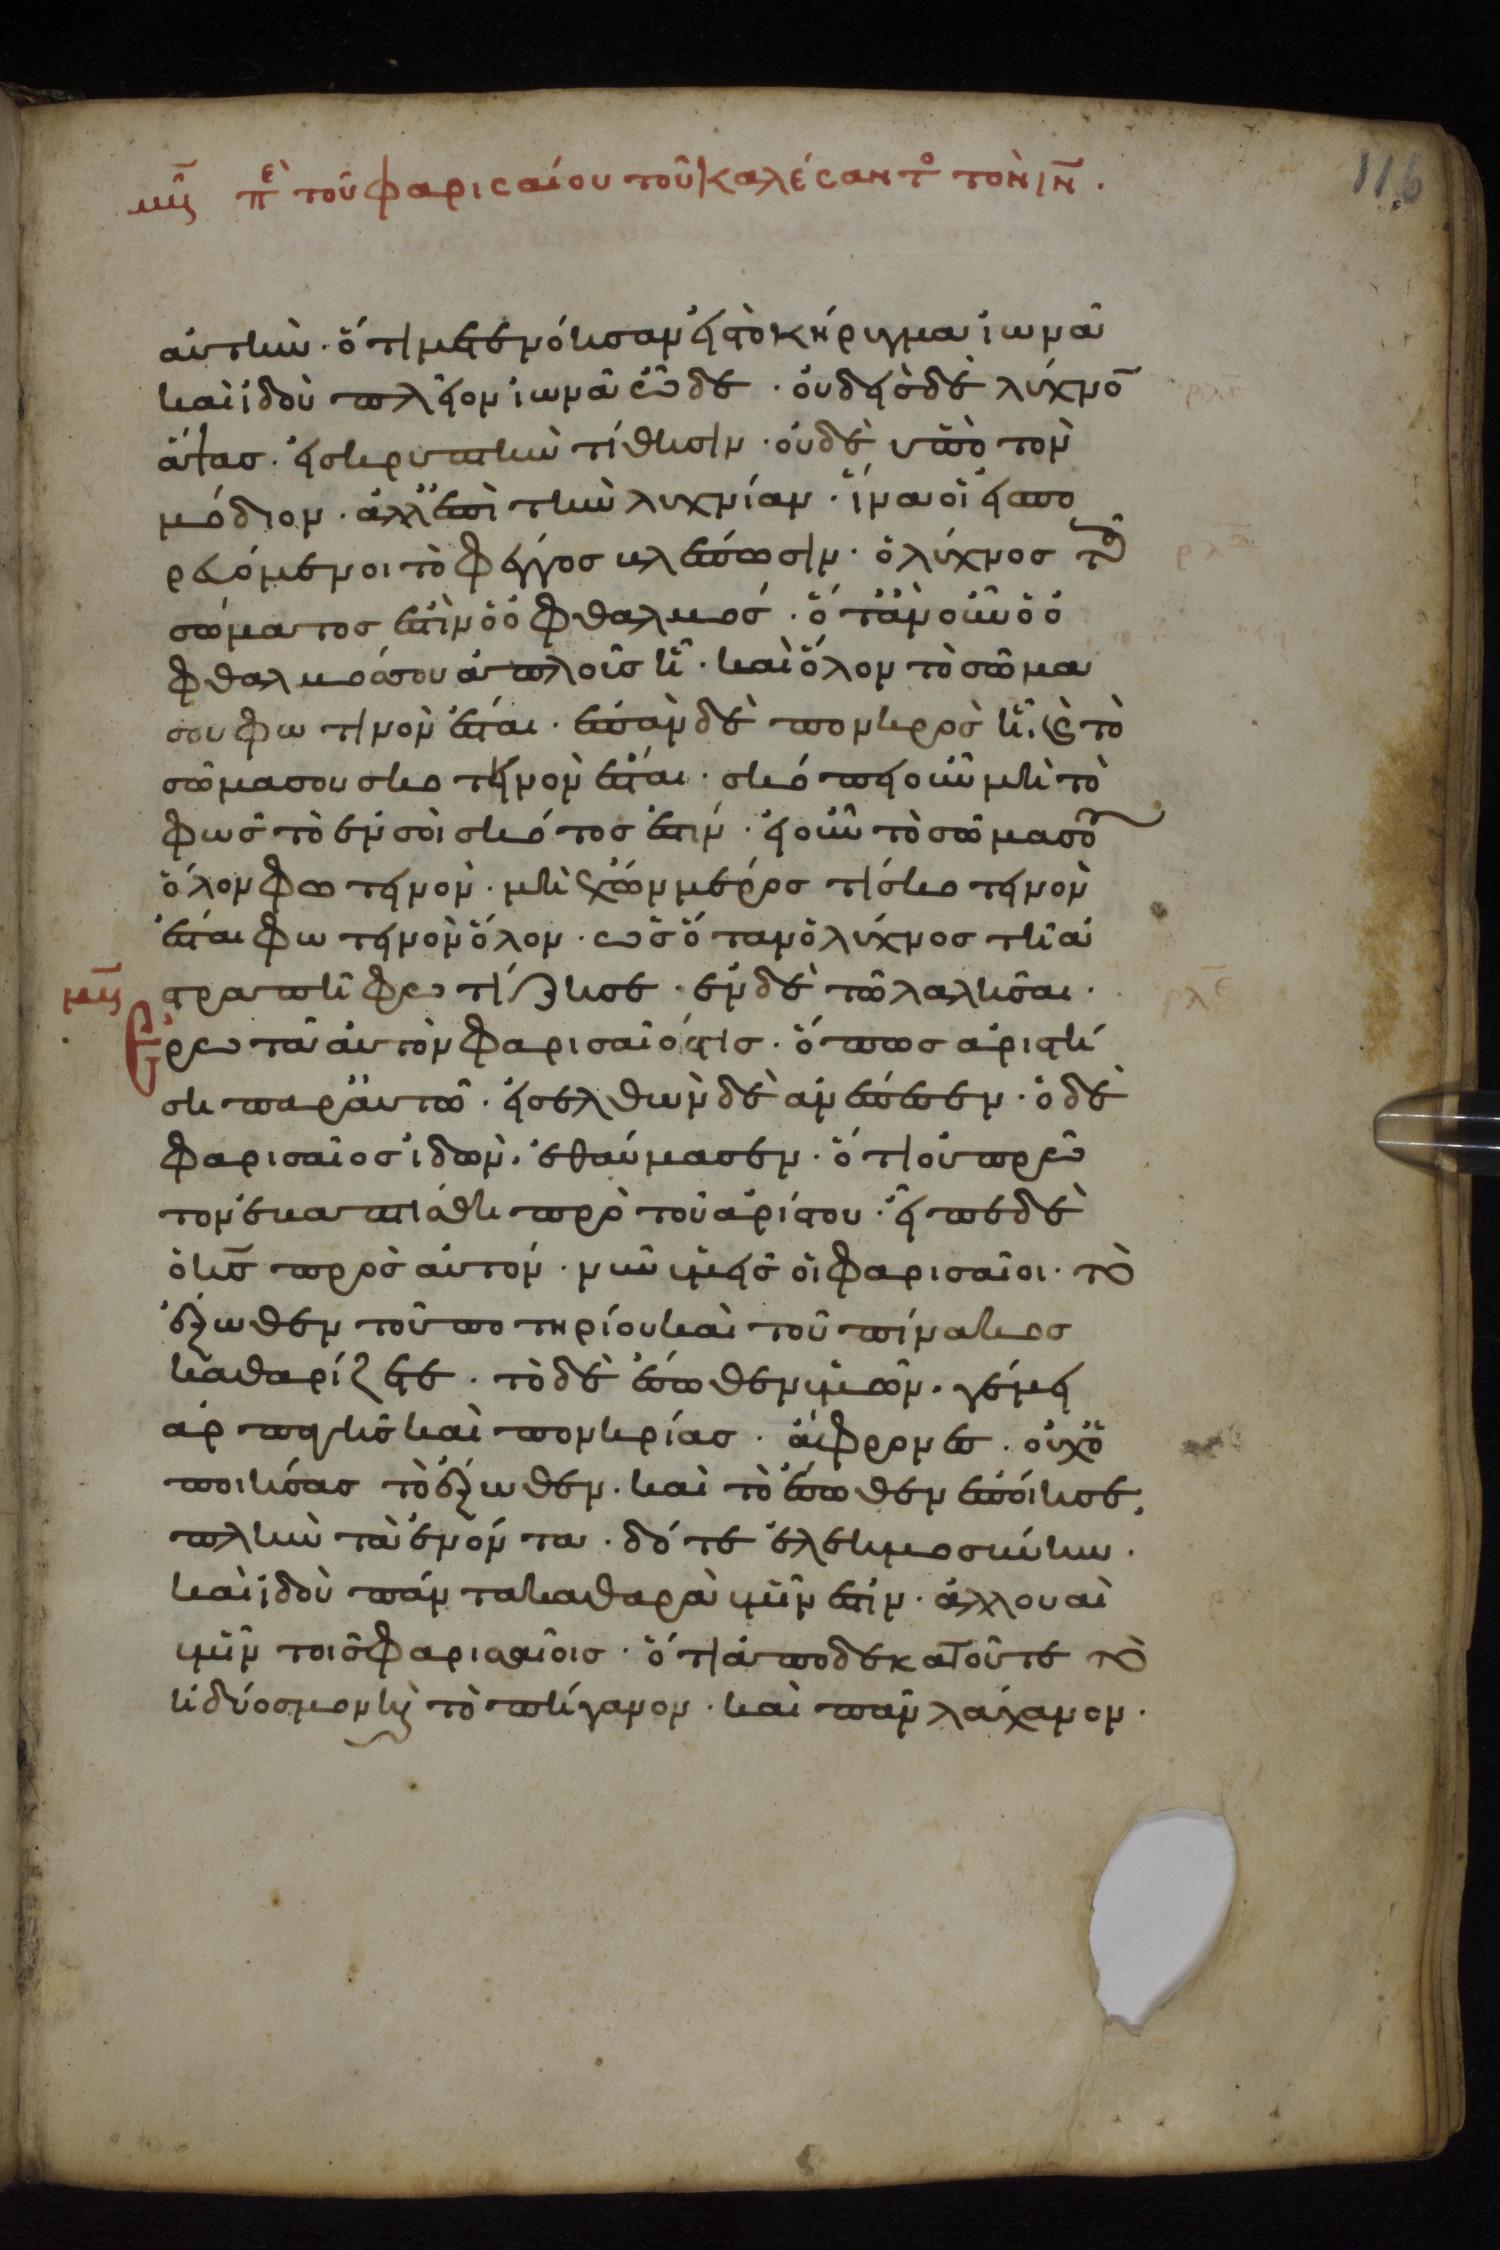 μη̅ πὲ τοῦ φαρισαίου τοῦ καλέσαντο τὸν ιν̅ · 116
αὐτὴν · ὅτι μετενόησαν εἰς τὸ κήρυγμα ἰωνᾶ
καὶ ἰδοὺ πλεῖον ἰωνᾶ ὧδε · οὐδεὶς δὲ λύχνο̅
ἅψας · εἰς κρυπτὴν τίθησιν · οὐδὲ ὑπὸ τὸν
μόδιον · ἀλλ' ἐπὶ τὴν λυχνίαν · ἵνα οἱ εἰσπο
ρευόμενοι τὸ φέγγος βλέπωσιν · ὁ λύχνος τοῦ
σώματος ἐστὶν ὁ ὀφθαλμός · ὅταν οὖν ὁ ὀ
φθαλμός σου ἁπλοῦς ἦ · καὶ ὅλον τὸ σῶμα
σου φωτινὸν ἔσται · ἐπὰν δὲ πονηρὸς ἦ, καὶ τὸ
σῶμα σου σκοτεινὸν ἔσται · σκόπει οὖν μὴ τὸ
φῶς τὸ ἐν σοὶ σκότος ἐστίν · εἰ οὖν τὸ σῶμα σου
ὅλον φωτεινὸν · μὴ ἔχων μέρος τι σκοτεινὸν
ἔσται φωτεινὸν ὅλον · ὡς ὅταν ὁ λύχνος τῆ ἀ
στραπῆ φωτίζη σε · ἐν δὲ τῶ λαλῆσαι ·
μη̅
ἐρωτᾶ αὐτὸν φαρισαῖός τις · ὅπως ἀριστή
ση παρ' αὐτῶ · εἰσελθὼν δὲ ἀνέπεσεν · ὁ δὲ
φαρισαῖος ἰδὼν · ἐθαύμασεν · ὅτι οὐ πρῶ
τον ἐβαπτίσθη πρὸ τοῦ ἀρίστου · εἶπε δὲ
ὁ κ̅ς̅ πρὸς αὐτόν · νῦν ὑμεῖς οἱ φαρισαῖοι · τὸ
ἔξωθεν τοῦ ποτηρίου καὶ τοῦ πίνακος
καθαρίζετε · τὸ δὲ ἔσωθεν ὑμῶν · γέμει
ἁρπαγῆς καὶ πονηρίας · ἄφρονες · οὐχ ὁ
ποιήσας τὸ ἔξωθεν · καὶ τὸ ἔσωθεν ἐποίησε,
πλὴν τὰ ἐνόντα · δότε ἐλεημοσύνην ·
καὶ ἰδοὺ πάντα καθαρὰ ὑμῖν ἐστίν · ἀλλ' οὐαὶ
ὑμῖν τοῖς φαρισαίοις · ὅτι ἀποδεκατοῦτε τὸ
ἡδύοσμον καὶ τὸ πήγανον · καὶ πᾶν λάχανον ·